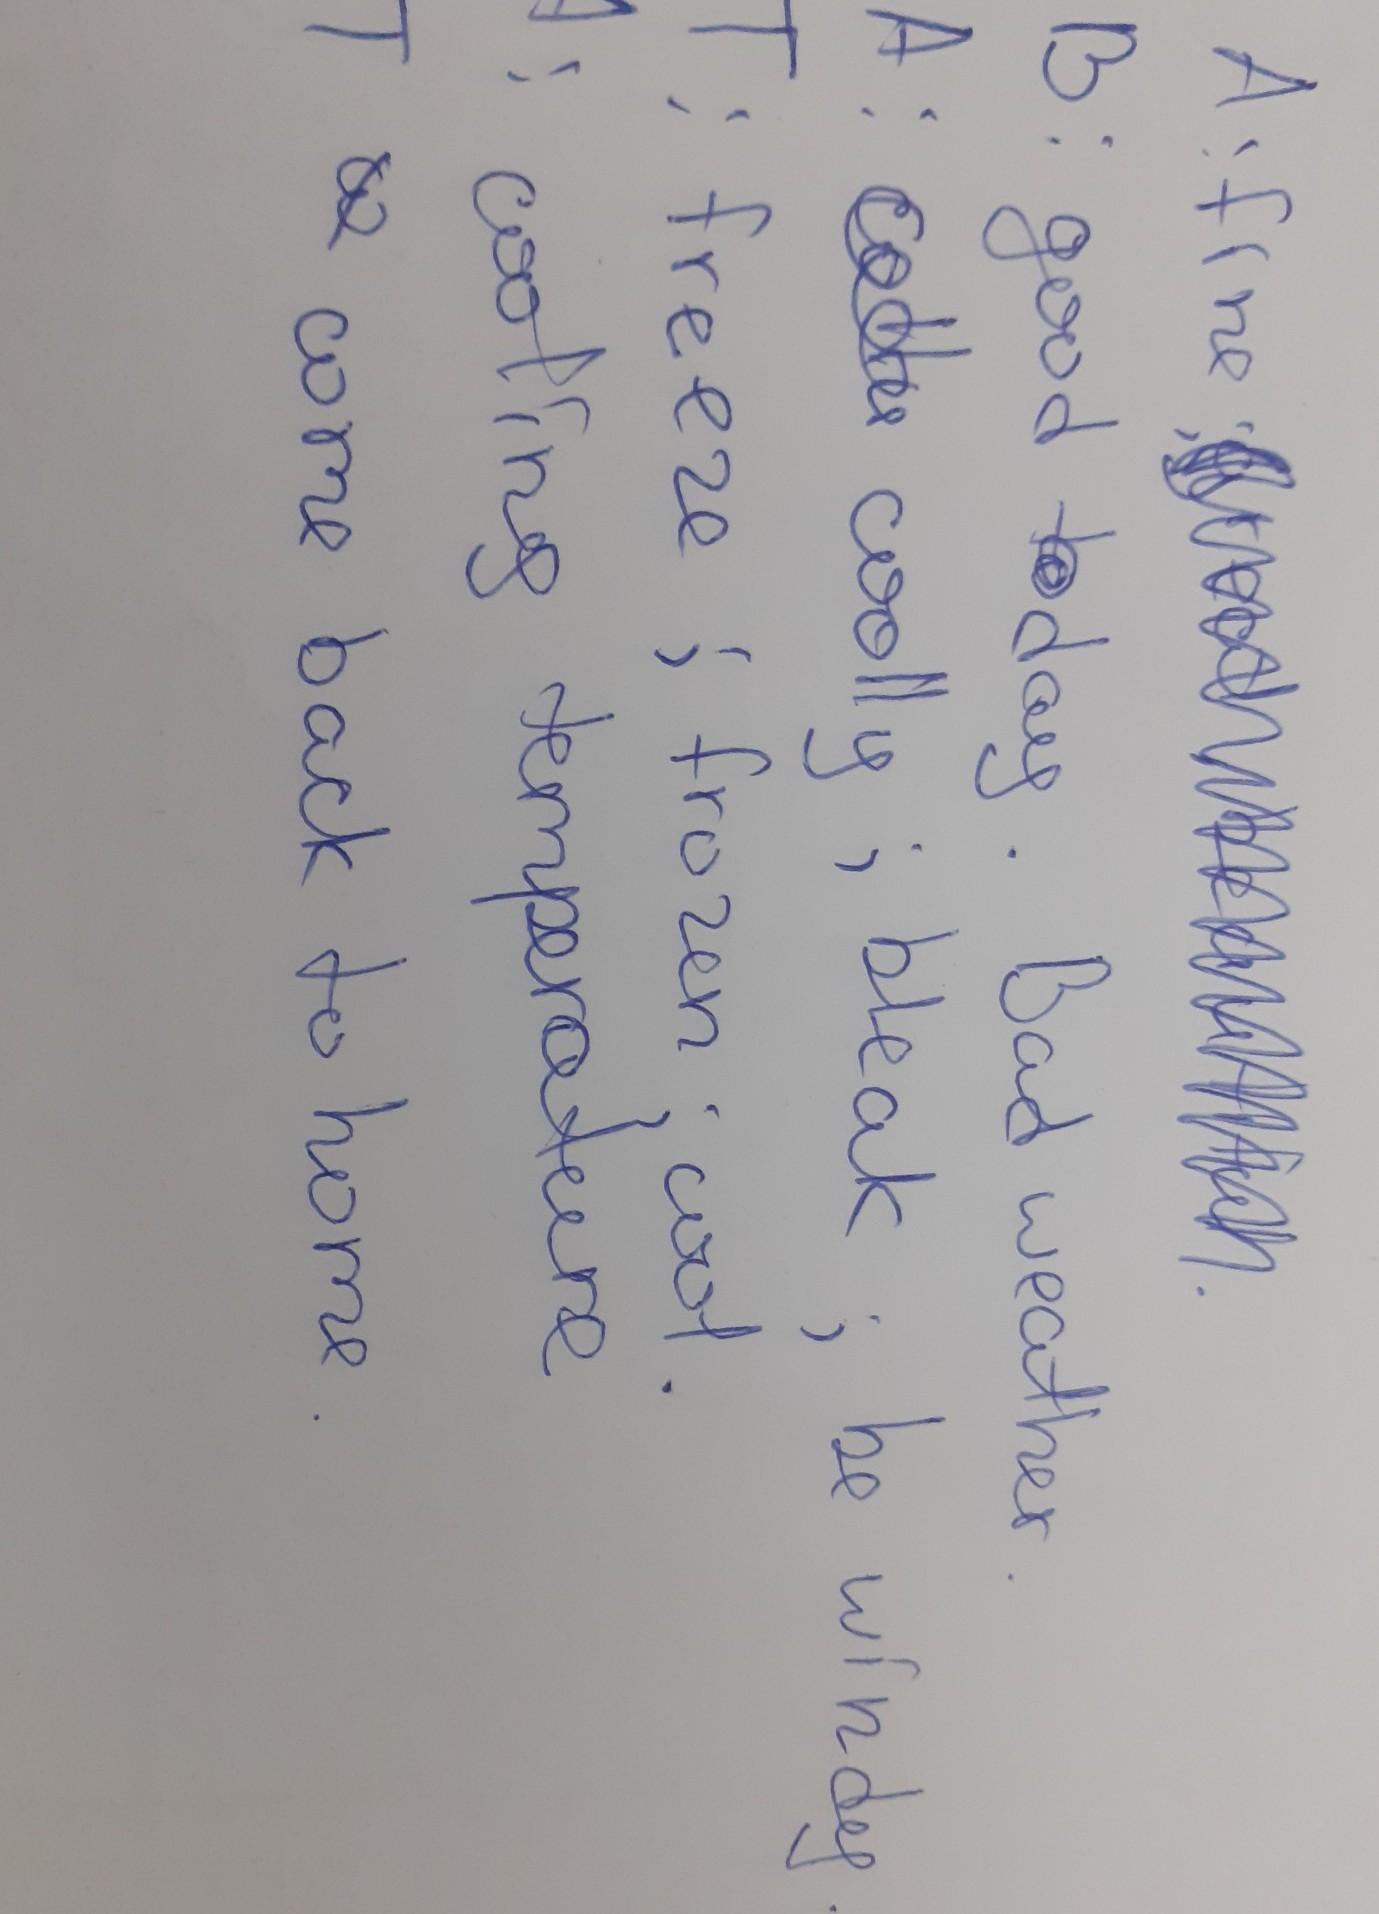 A: fine;
B: good today. Bad weather.
A: coolly; bleak; be windy.
T: freeze; frozen; cool.
A: cooling temperature
T come back to home.